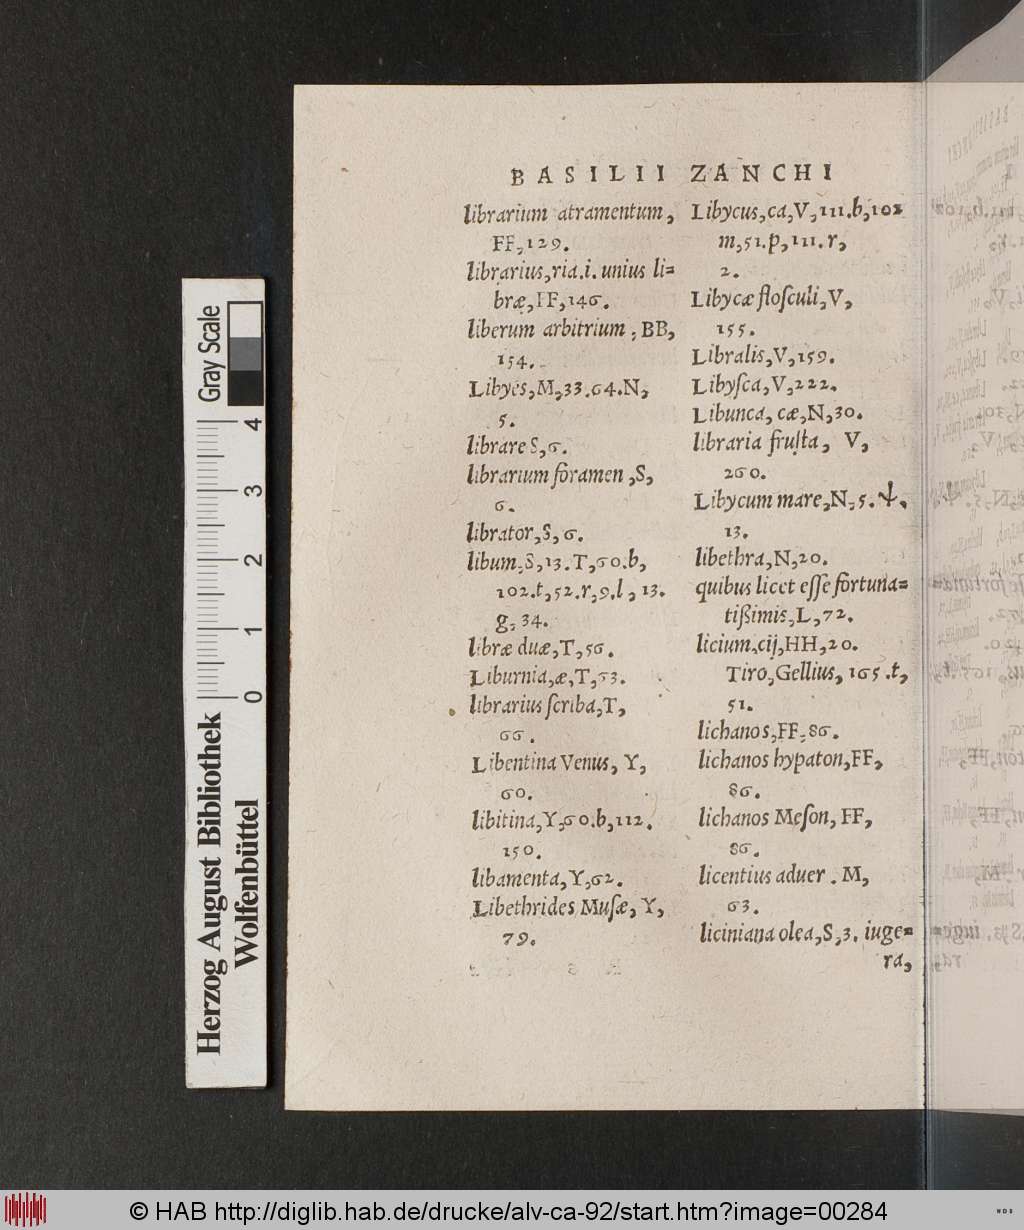 BASILII ZANCHI
librarium atramentum,
FF,129.
librarius,ria.i. unius li=
bræ,FF,146.
liberum arbitrium, BB,
154.
Libyes,M,33.64.N,
5.
librare S,6.
librarium foramen ,S,
6.
librator,S,6.
libum,S,13.T,60.b,
102.t,52.r,9.l, 13.
g,34.
libræ duæ,T,56.
Liburnia,æ,T,63.
librarius ſcriba,T,
66.
Libentina Venus, Y,
60.
libitina,Y,60.b,112.
150.
libamenta,Y,62.
Libethrides Muſæ, Y,
79.
Libycus,ca,V,111.b,102
m,51.p,111.r,
2.
Libycæ floſculi,V,
155.
Libralis,V,159.
Libyſca,V,222.
Libunca, cæ,N,30.
libraria fruſta, V,
260.
Libycum mare,N,5.Ψ,
13.
libethra,N,20.
quibus licet eſſe fortuna=
tißimis,L,72.
licium,cij,HH,20.
Tiro,Gellius,165.t,
51.
lichanos,FF,86.
lichanos hypaton,FF,
86.
lichanos Meſon, FF,
86.
licentius aduer. M,
63.
liciniana olea,S,3. iuge=
ra,
Gray Scale
4
3
2
1
0
Herzog August Bibliothek
Wolfenbüttel
© HAB http://diglib.hab.de/drucke/alv-ca-92/start.htm?image=00284